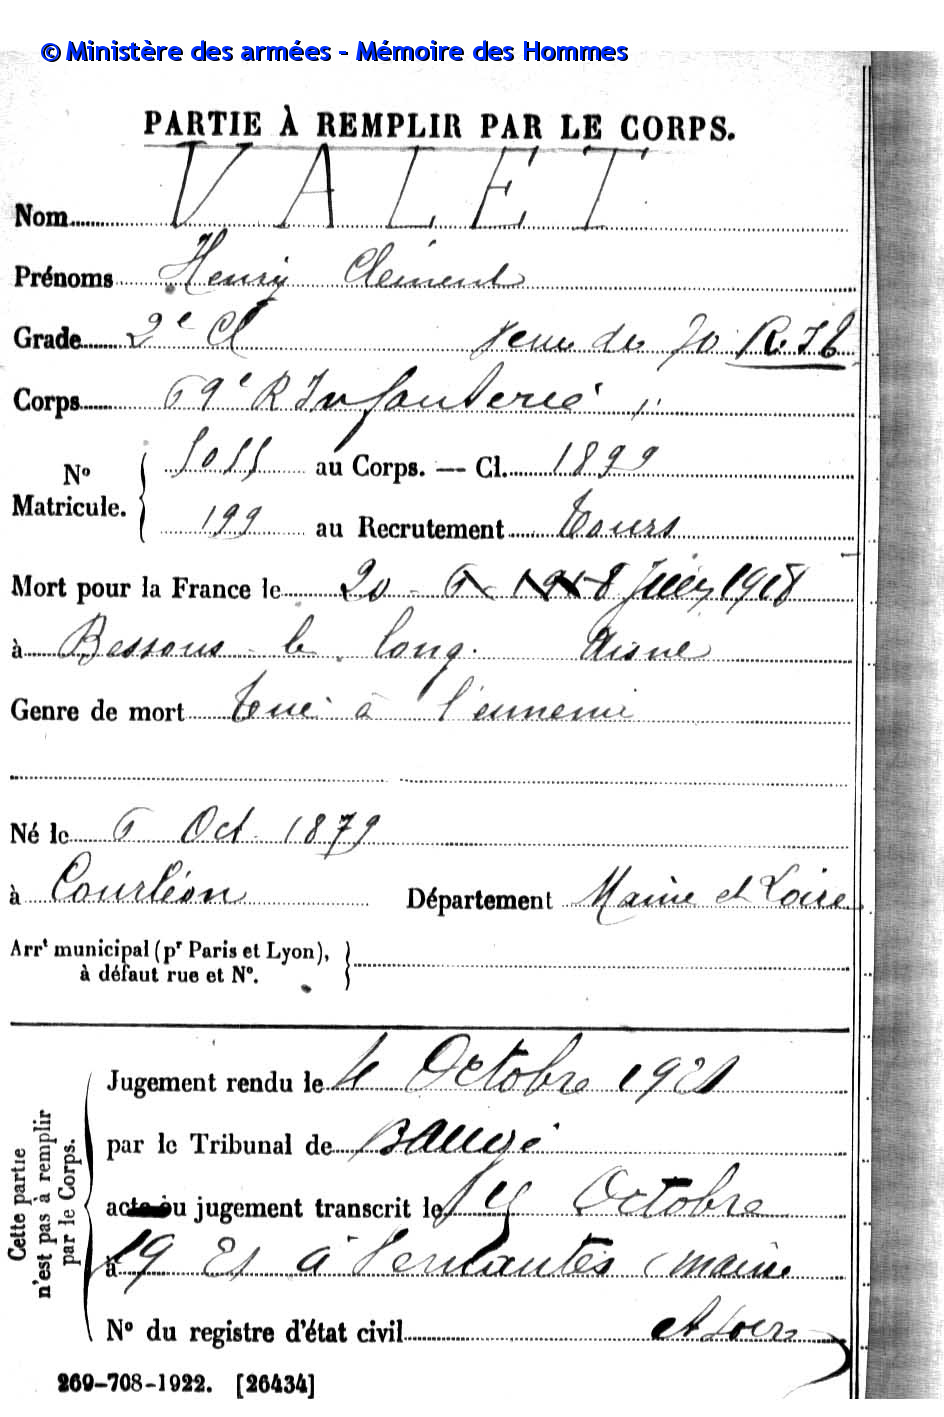 © Ministère des armées - Mémoire des Hommes
PARTIE À REMPLIR PAR LE CORPS.
Nom VALET
Prénoms Henry Clément
Grade 2e Cl venu du 70 R.I.
Corps 69e R Infanterie
No Matricule. 5055 au Corps. — Cl. 1899
199 au Recrutement Tours
Mort pour la France le 20 - 6 - 1918 8 Juin 1918
à le long. Aisne
Genre de mort tué à l'ennemi
Né le 6 Oct 1879
à Courléon Département Maine et Loire
Arrt municipal (pr Paris et Lyon),
à défaut rue et No.
Cette partie
n'est pas à remplir
par le Corps.
Jugement rendu le 4 Octobre 1921
par le Tribunal de Baugé
acte ou jugement transcrit le 14 Octobre
à 1921 à Vernantes (maine
No du registre d'état civil et Loire
269-708-1922. [26434]